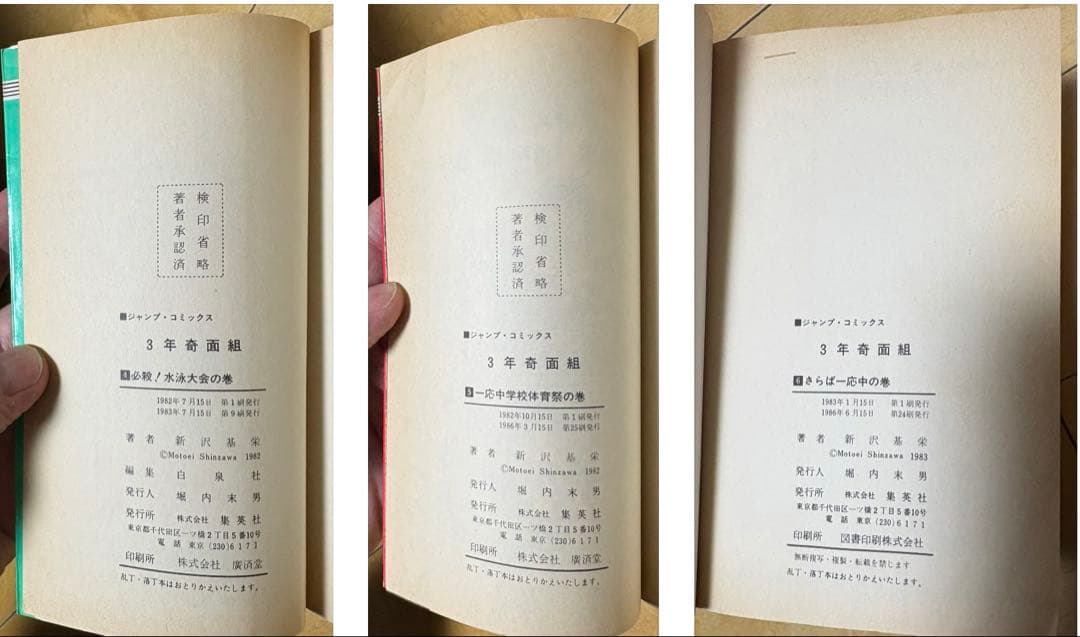 検印省略
著者承認済
■ジャンプ・コミックス
3年奇面組
4必殺!水泳大会の巻
1982年7月15日 第1刷発行
1983年7月15日 第9刷発行
著者 新沢基栄
©Motoei Shinzawa 1982
編集 白泉社
発行人 堀内末男
発行所 株式会社 集英社
東京都千代田区一ツ橋2丁目5番10号
電話 東京(230)6171
印刷所 株式会社 廣済堂
乱丁・落丁本はおとりかえいたします。
検印省略
著者承認済
■ジャンプ・コミックス
3年奇面組
5一応中学校体育祭の巻
1982年10月15日 第1刷発行
1986年3月15日 第25刷発行
著者 新沢基栄
©Motoei Shinzawa 1982
発行人 堀内末男
発行所 株式会社 集英社
東京都千代田区一ツ橋2丁目5番10号
電話 東京(230)6171
印刷所 株式会社 廣済堂
乱丁・落丁本はおとりかえいたします。
■ジャンプ・コミックス
3年奇面組
6さらば一応中の巻
1983年1月15日 第1刷発行
1986年6月15日 第24刷発行
著者 新沢基栄
©Motoei Shinzawa 1983
発行人 堀内末男
発行所 株式会社 集英社
東京都千代田区一ツ橋2丁目5番10号
電話 東京(230)6171
印刷所 図書印刷株式会社
無断複写・複製・転載を禁じます
乱丁・落丁本はおとりかえいたします。